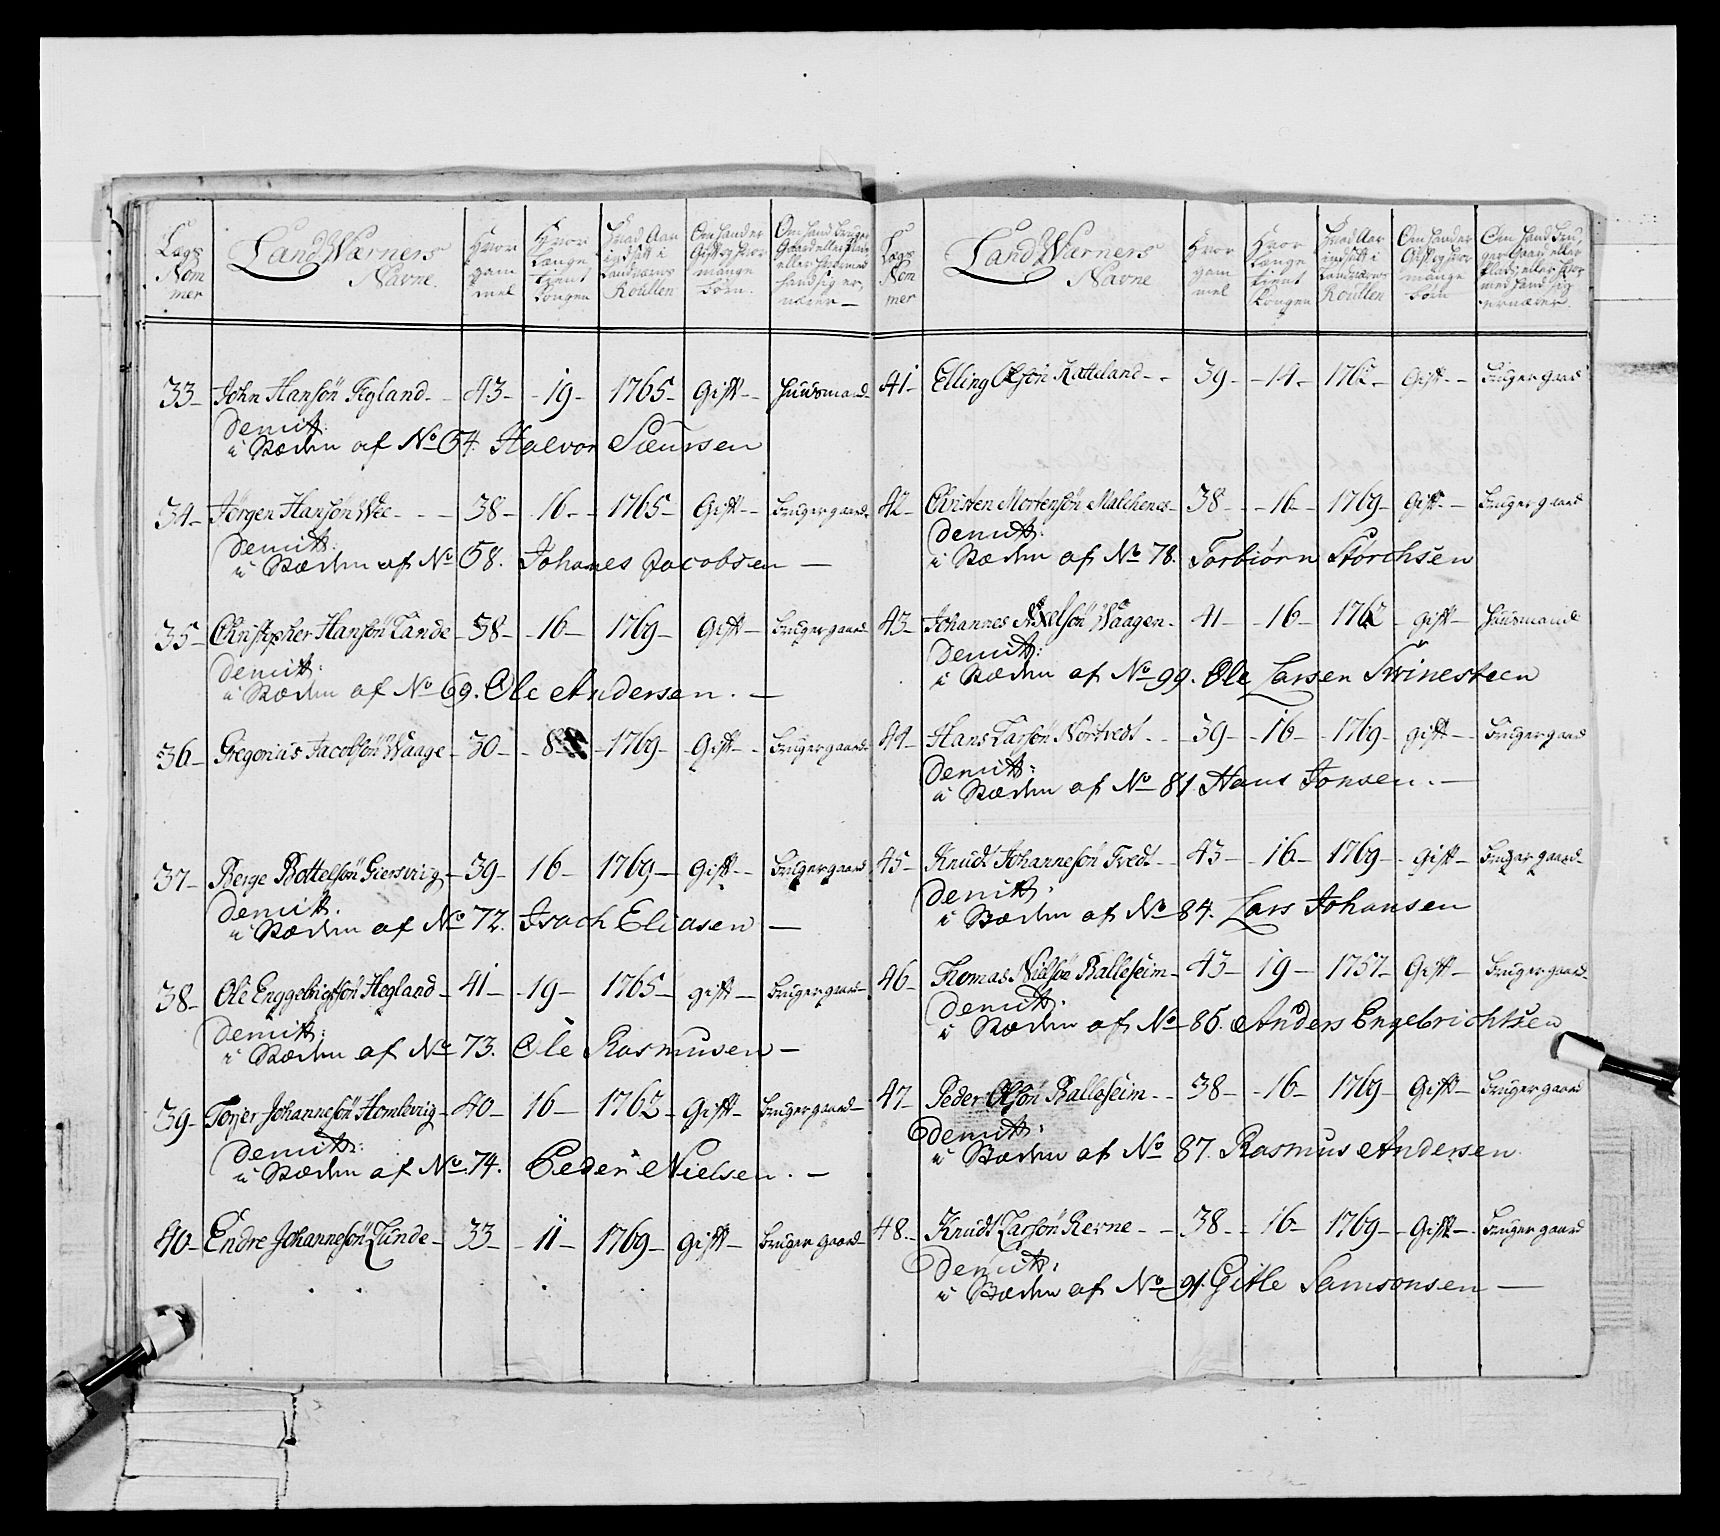 Lægs Nom mer
LandWærners Navne.
Hvor gam mel
Hvor Længe tient Kongen
Hvad Aar indsatt i Landværns Roullen
Om hand er Gift og hvor mange Børn.
Om hand bruger Gaard eller Plads eller hvormed hand sig er, nærer —
33 – John Hansön Fegland – 43 – 19 – 1765 – Gift – Huusmand
Demitt:
i Stæden af No 64. Halvor Siursen
34 – Jörgen Hansön Wee – 38 – 16 – 1765 – Gift – bruger gaard
Demitt:
i Stæden af No 58. Johanes Jacobsen —
35 – Christopher Hansön Lande – 38 – 16 – 1769 – Gift – bruger gaard
Demitt:
i Stæden af No 69. Ole Andersen. —
36 – Gregorius Jacobsön Waage – 30 – 8 – 1769 – Gift – bruger gaard
37 – Berge Bottelsön Giersvig – 39 – 16 – 1769 – Gift – bruger gaard
Demitt.
i Stæden af No 72. Isach Eliasen —
38 – Ole Enggebrigtsön Hegland – 41 – 19 – 1765 – gift – bruger gaard
Demitt:
i Stæden af No 73. Ole Rasmusen —
39 – Torjer Johannesön Homlevig – 40 – 16 – 1762 – Gift – bruger gaard
Demitt:
i Stæden af No 74. Peder Nielsen. —
40 – Endre Johannesön Lunde – 33 – 11 – 1769 – gift – bruger gaard
Lægs Nom mer
LandWærners Navne
Hvor gam mel
Hvor Længe tient Kongen
Hvad Aar indsatt i Landværns Roullen
Om hand er Gift og hvor mange Börn
Om hand bru, ger Gaard eller Plads, eller hvor med hand sig ernærer.
41 – Elling Olsön Ratteland – 39 – 14 – 1762 – Gift – bruger gaard
42 – Christen Mortensön Malchenes – 38 – 16 – 1769 – Gift – bruger gaard
Demitt:
i Stæden af No 78. Torbiörn Storchsen
43 – Johannes Axelsön Waagen – 41 – 16 – 1762 – gift – Huusmand
Demitt:
i Stæden af No 99. Ole Larsen Svinesteen
44 – Hans Larsön Nortvedt – 39 – 16 – 1769 – gift – bruger gaard
Demitt:
i Stæden af No 81 Hans Jonsen. —
45 – Knudt Johannesön Tvedt – 43 – 16 – 1769 – gift – bruger gaard
Demitt:
i Stæden af No 84. Lars Johansen
46 – Thomas Nielsön Balleseim – 43 – 19 – 1757 – Gift – bruger gaard
Demitt.
i Stæden af No 86. Anders Engebrichtsen
47 – Peder Olsön Balleseim – 38 – 16 – 1769 – Gift – bruger gaard
Demitt:
i Stæden af No 87. Rasmus Andersen.
48. – Knudt Larsön Revne – 38 – 16 – 1769 – Gift – bruger gaard
Demitt:
i Stæden af No 91. Gitle Samsonsen —